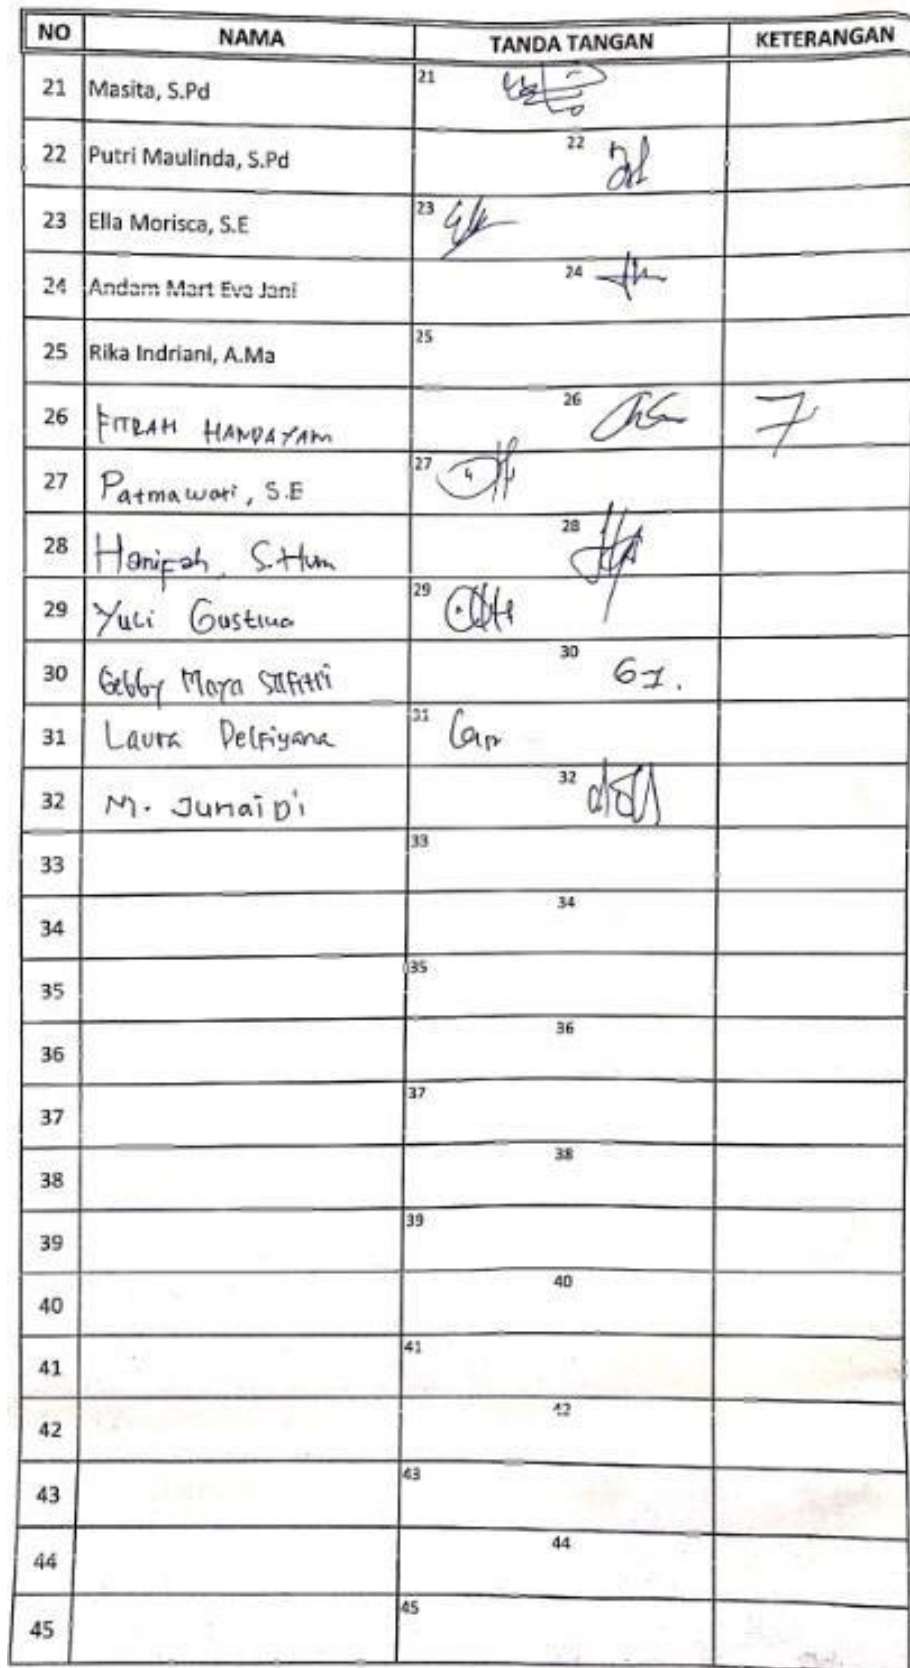 NO NAMA TANDA TANGAN KETERANGAN
21 Masita, S.Pd 21
22 Putri Maulinda, S.Pd 22
23 Ella Morisca, S.E 23
24 Andam Mart Eva Jani 24
25 Rika Indriani, A.Ma 25
26 FITRAH HANDAYANI 26 7
27 Patmawati, S.E 27
28 Hanifah, S.Hum 28
29 Yuli Gustina 29
30 Gebby Maya Safitri 30 G7.
31 Laura Delfiyana 31
32 M. Junaidi 32
33 33
34 34
35 35
36 36
37 37
38 38
39 39
40 40
41 41
42 42
43 43
44 44
45 45